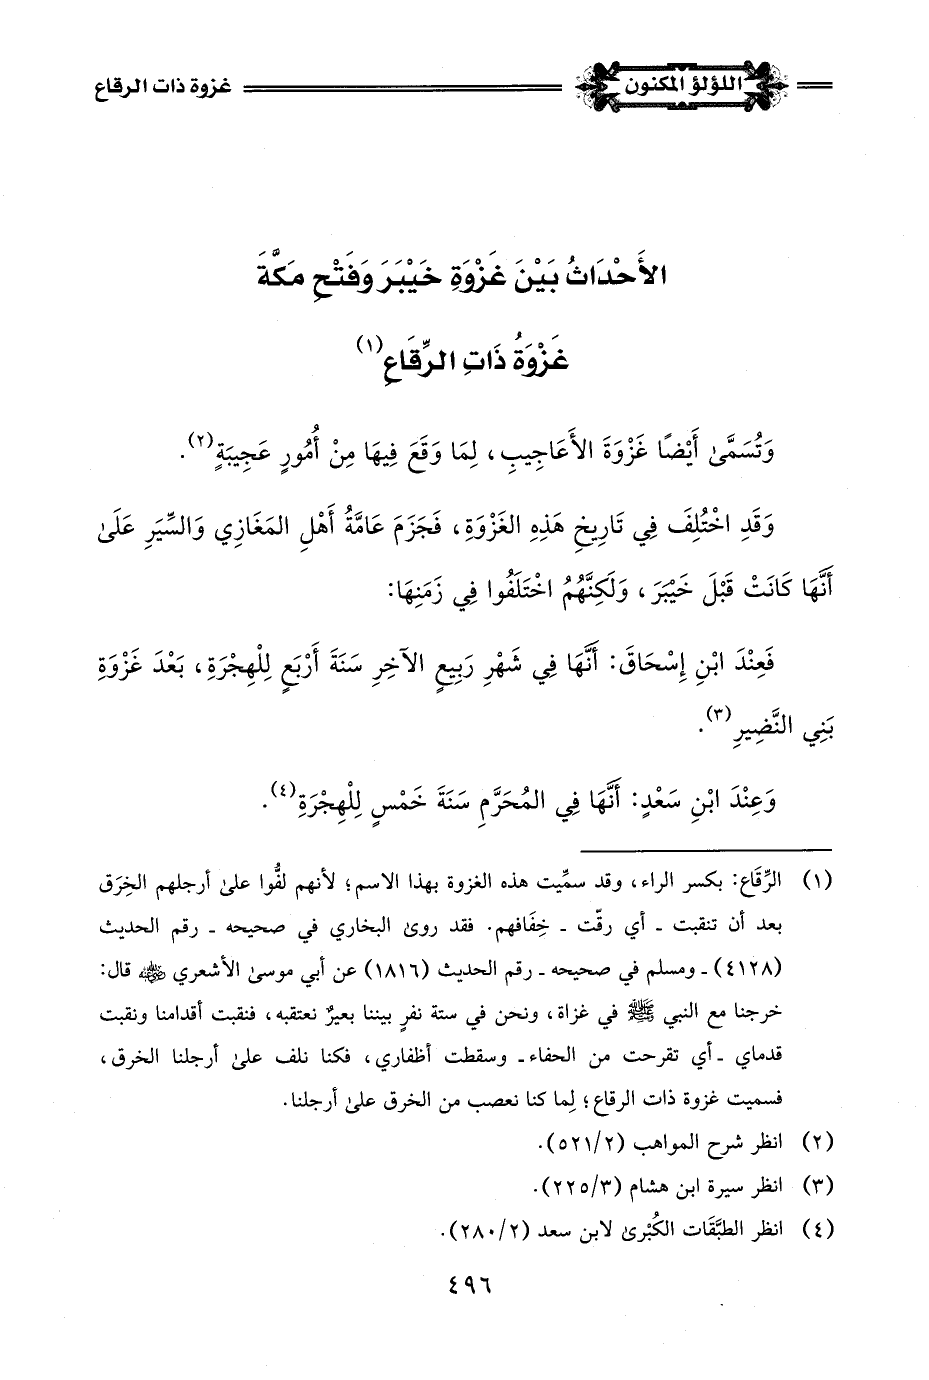 اللؤلؤ المكنون
غزوة ذات الرقاع
الأَحْدَاثُ بَيْنَ غَزْوَةِ خَيْبَرَ وَفَتْحِ مَكَّةَ
غَزْوَةُ ذَاتِ الرِّقَاعِ(١)
وَتُسَمَّىٰ أَيْضًا غَزْوَةَ الأَعَاجِيبِ، لِمَا وَقَعَ فِيهَا مِنْ أُمُورٍ عَجِيبَةٍ(٢).
وَقَدِ اخْتُلِفَ فِي تَارِيخِ هَذِهِ الغَزْوَةِ، فَجَزَمَ عَامَّةُ أَهْلِ المَغَازِي وَالسِّيَرِ عَلَىٰ
أَنَّهَا كَانَتْ قَبْلَ خَيْبَرَ، وَلَكِنَّهُمُ اخْتَلَفُوا فِي زَمَنِهَا:
فَعِنْدَ ابْنِ إِسْحَاقَ: أَنَّهَا فِي شَهْرِ رَبِيعٍ الآخِرِ سَنَةَ أَرْبَعٍ لِلْهِجْرَةِ، بَعْدَ غَزْوَةِ
بَنِي النَّضِيرِ(٣).
وَعِنْدَ ابْنِ سَعْدٍ: أَنَّهَا فِي المُحَرَّمِ سَنَةَ خَمْسٍ لِلْهِجْرَةِ(٤).
(١) الرِّقَاع: بكسر الراء، وقد سمِّيت هذه الغزوة بهذا الاسم؛ لأنهم لفُّوا علىٰ أرجلهم الخِرَق
بعد أن تنقبت ـ أي رقّت ـ خِفَافهم. فقد روىٰ البخاري في صحيحه ـ رقم الحديث
(٤١٢٨) ـ ومسلم في صحيحه ـ رقم الحديث (١٨١٦) عن أبي موسىٰ الأشعري ﵁ قال:
خرجنا مع النبي ﷺ في غزاة، ونحن في ستة نفرٍ بيننا بعيرٌ نعتقبه، فنقبت أقدامنا ونقبت
قدماي ـ أي تقرحت من الحفاء ـ وسقطت أظفاري، فكنا نلف علىٰ أرجلنا الخرق،
فسميت غزوة ذات الرقاع؛ لِما كنا نعصب من الخرق علىٰ أرجلنا.
(٢) انظر شرح المواهب (٥٢١/٢).
(٣) انظر سيرة ابن هشام (٢٢٥/٣).
(٤) انظر الطبَّقَات الكُبْرىٰ لابن سعد (٢٨٠/٢).
٤٩٦